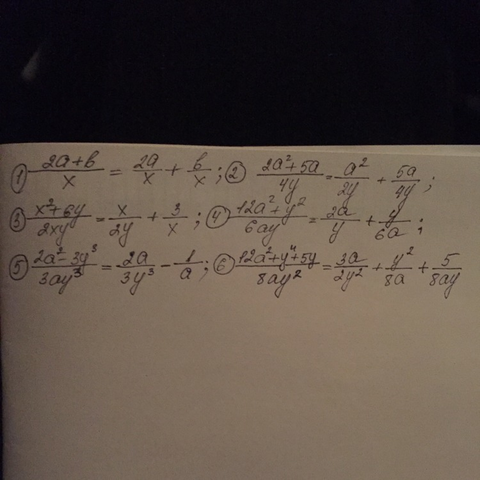 ① (2a+b)/x = 2a/x + b/x; ② (2a²+5a)/4y = a²/2y + 5a/4y;
③ (x²+6y)/2xy = x/2y + 3/x; ④ (12a²+y²)/6ay = 2a/y + y/6a;
⑤ (2a²-3y³)/3ay³ = 2a/3y³ - 1/a; ⑥ (12a²+y⁴+5y)/8ay² = 3a/2y² + y²/8a + 5/8ay